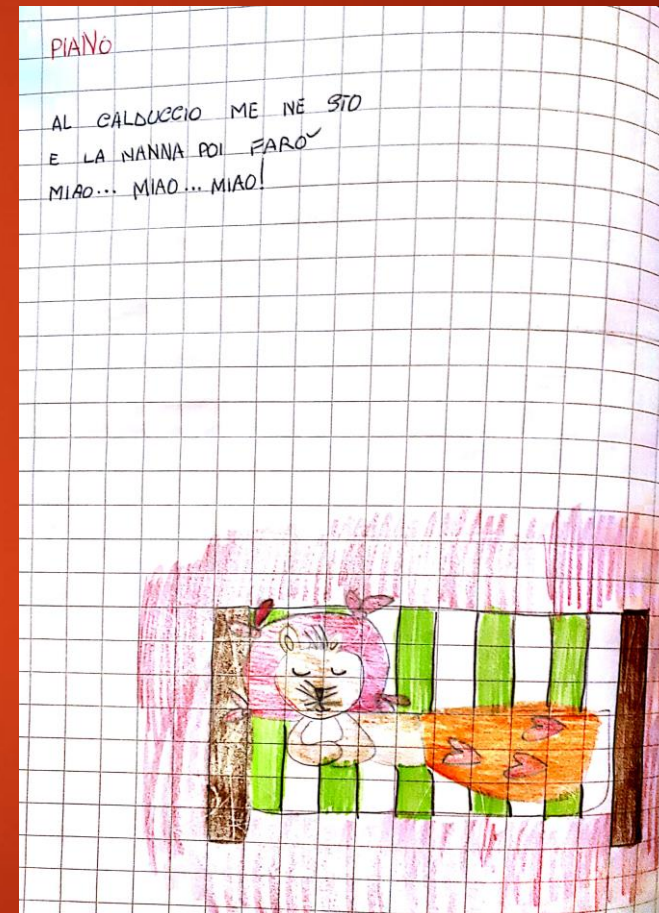 PIANO
AL CALDUCCIO ME NE STO
E LA NANNA POI FARO˘
MIAO... MIAO... MIAO!